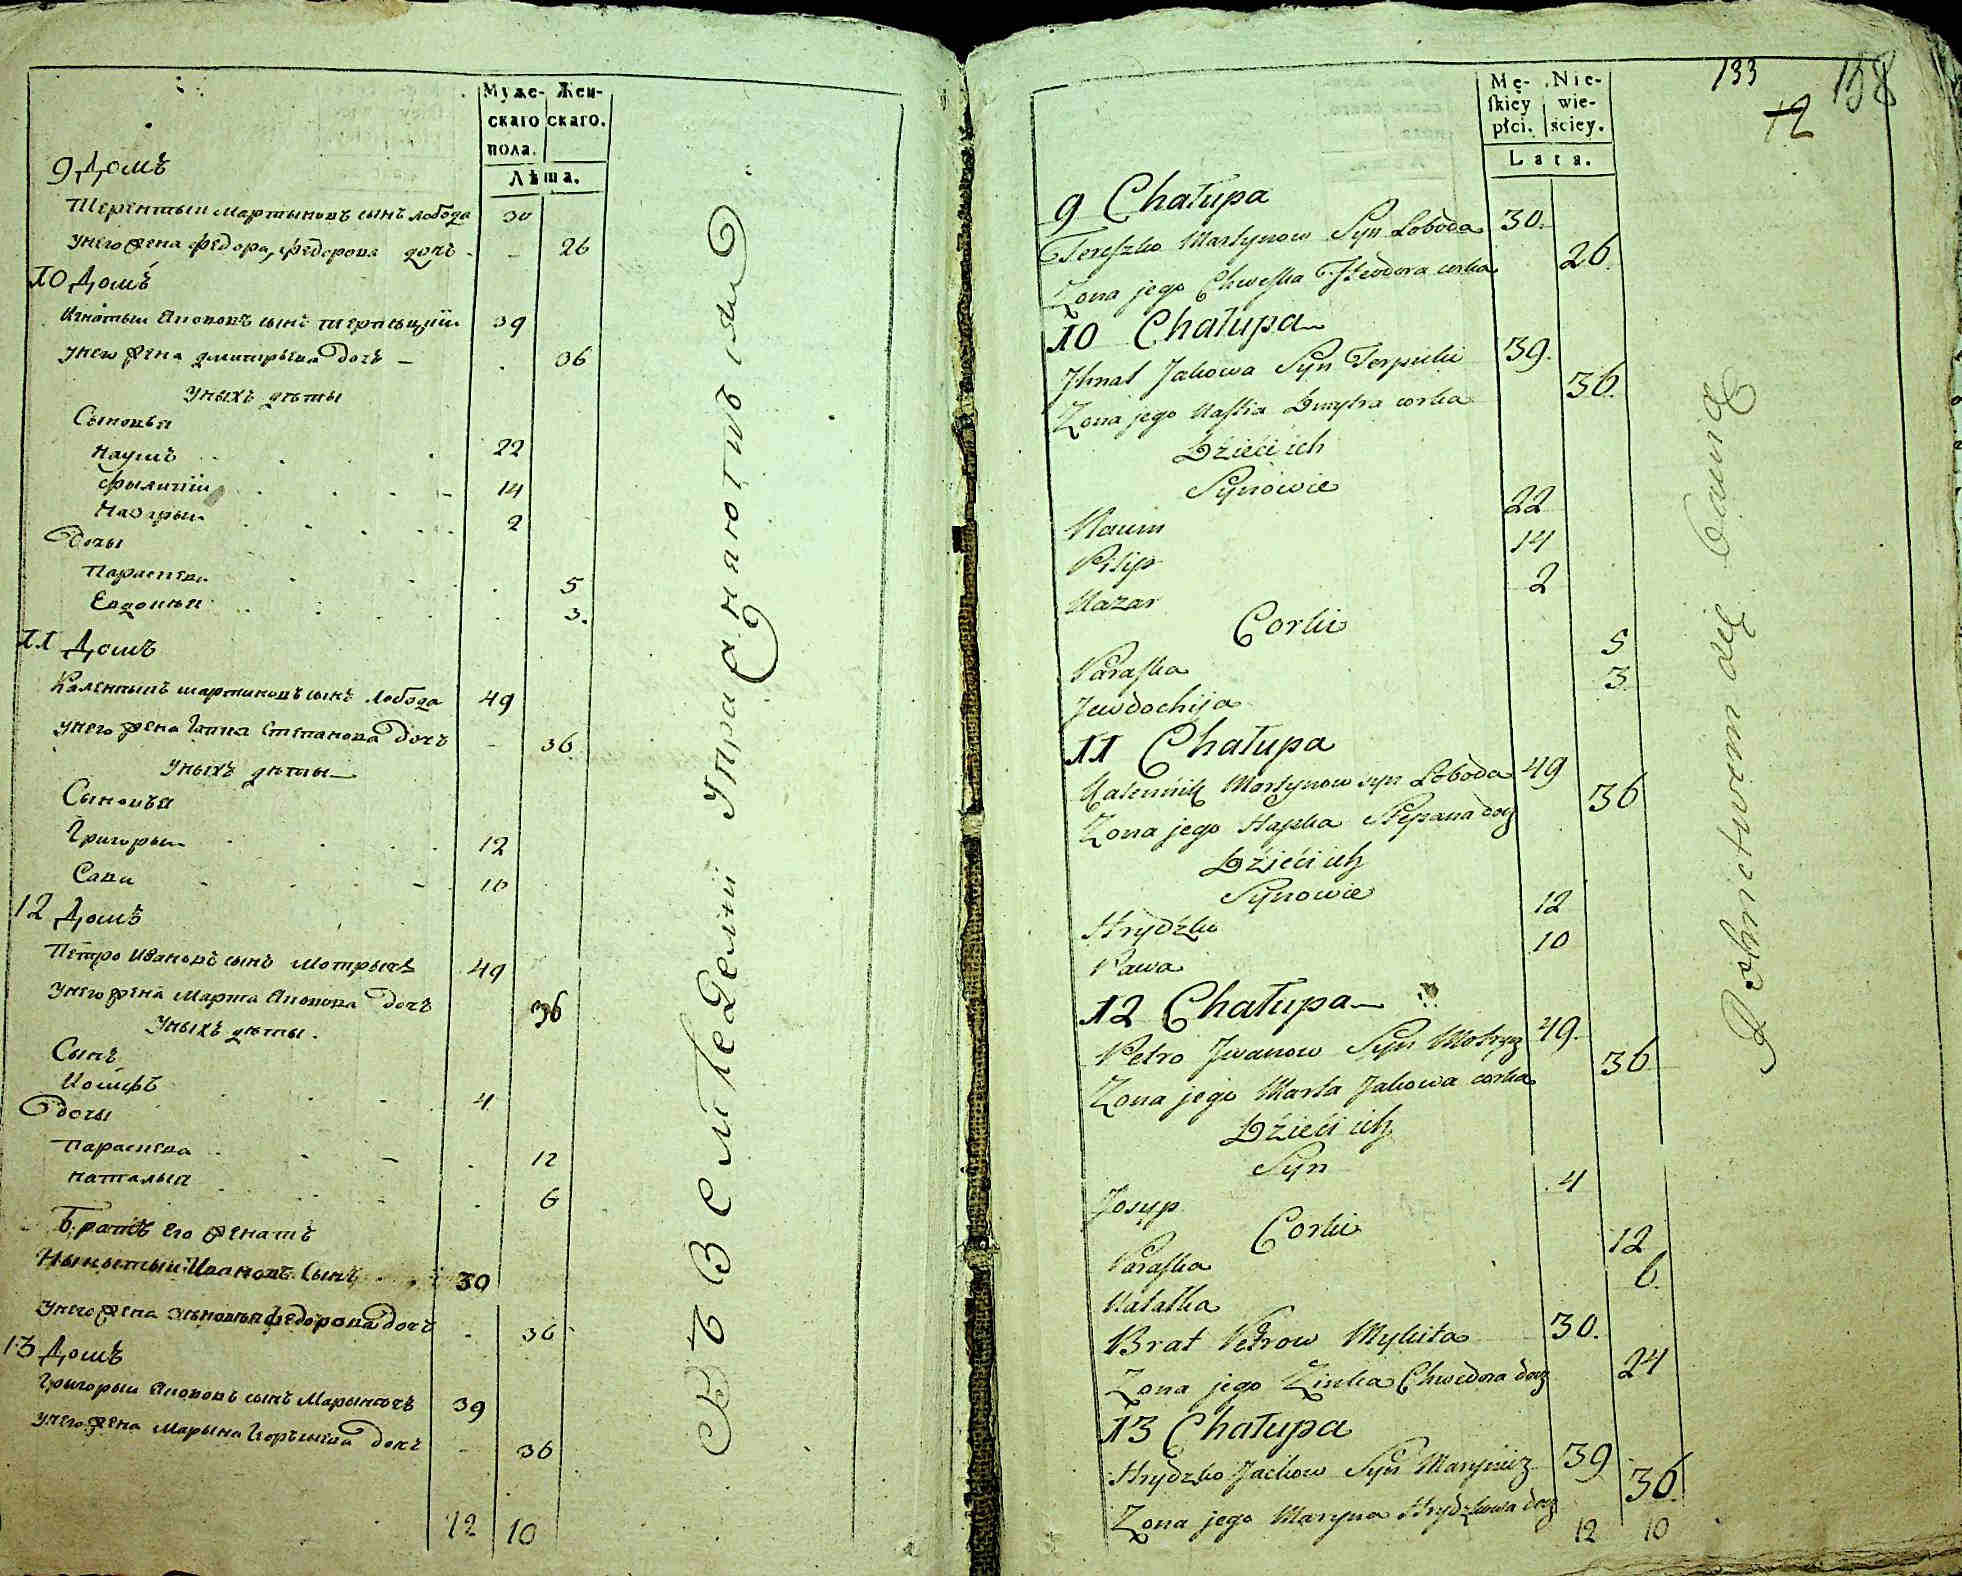 Муже- Жен-
скаго скаго.
пола.
Лѣта.
9 Домъ
Терентый мартыновъ сынъ лобода 30
унего жена федора, федорова дочь 26
10 Домъ
Игнатый Яковов сынъ 39
унего жена дмитрыева дочь 36
уныхъ дѣты
Сыновья
Наумъ 22
Фылипъ 14
Назарый 2
дочы
Параскева 5
Евдокия 3.
11 Домъ
мартиновъ сынъ Лобода 49
унего жена Гапка Степанова дочъ 36
уныхъ дѣты
Сыновья
Григорый 12
Сава 10
12 Домъ
Петро Ивановъ сынъ Мотрычъ 49
унего жена Марта Яковова дочъ 36
уныхъ дѣты.
Сынъ
Иосифъ 4
дочы
Параскева 12
Наталыя 6
Братъ его женатъ
Ивановъ Сынъ 30
унего жена федорова дочъ 36
13 Домъ
Григорый Яковов сынъ 39
унего жена Марына дочъ 36
12 10
Съ Земледелий упражняются
133 158
12
Mę- Nie-
skiey wie-
płci. ściey.
Lata.
9 Chałupa
Tereszko Martynow Syn Łoboda 30.
Zona jego Chweska Theodora corka 26.
10 Chałupa
Jhnat Jakowa Syn 39.
Zona jego Nastia Dmytra corka 36.
Dzieci ich
Synowie
Naum 22
Pilip 14
Nazar 2
Corki
Paraska 5
Jewdochija 3.
11 Chałupa
Martynow syn Łoboda 49
Zona jego Hapka Stepana 36
Dzieci ich
Synowie
Hrydzko 12
Sawa 10
12 Chałupa
Petro Jwanow Syn Motrycz 49.
Zona jego Marta Jakowa corka 36
Dzieci ich
Syn
Josyp 4
Corki
Paraska 12
Natalka 6
Brat Petrow Mykita 30.
Zona jego Zinka Chwedora 24
13 Chałupa
Hrydzko Jackow Syn 39
Zona jego Maryna Hrydzkowa 36.
12 10
Rolnictwem się bawią